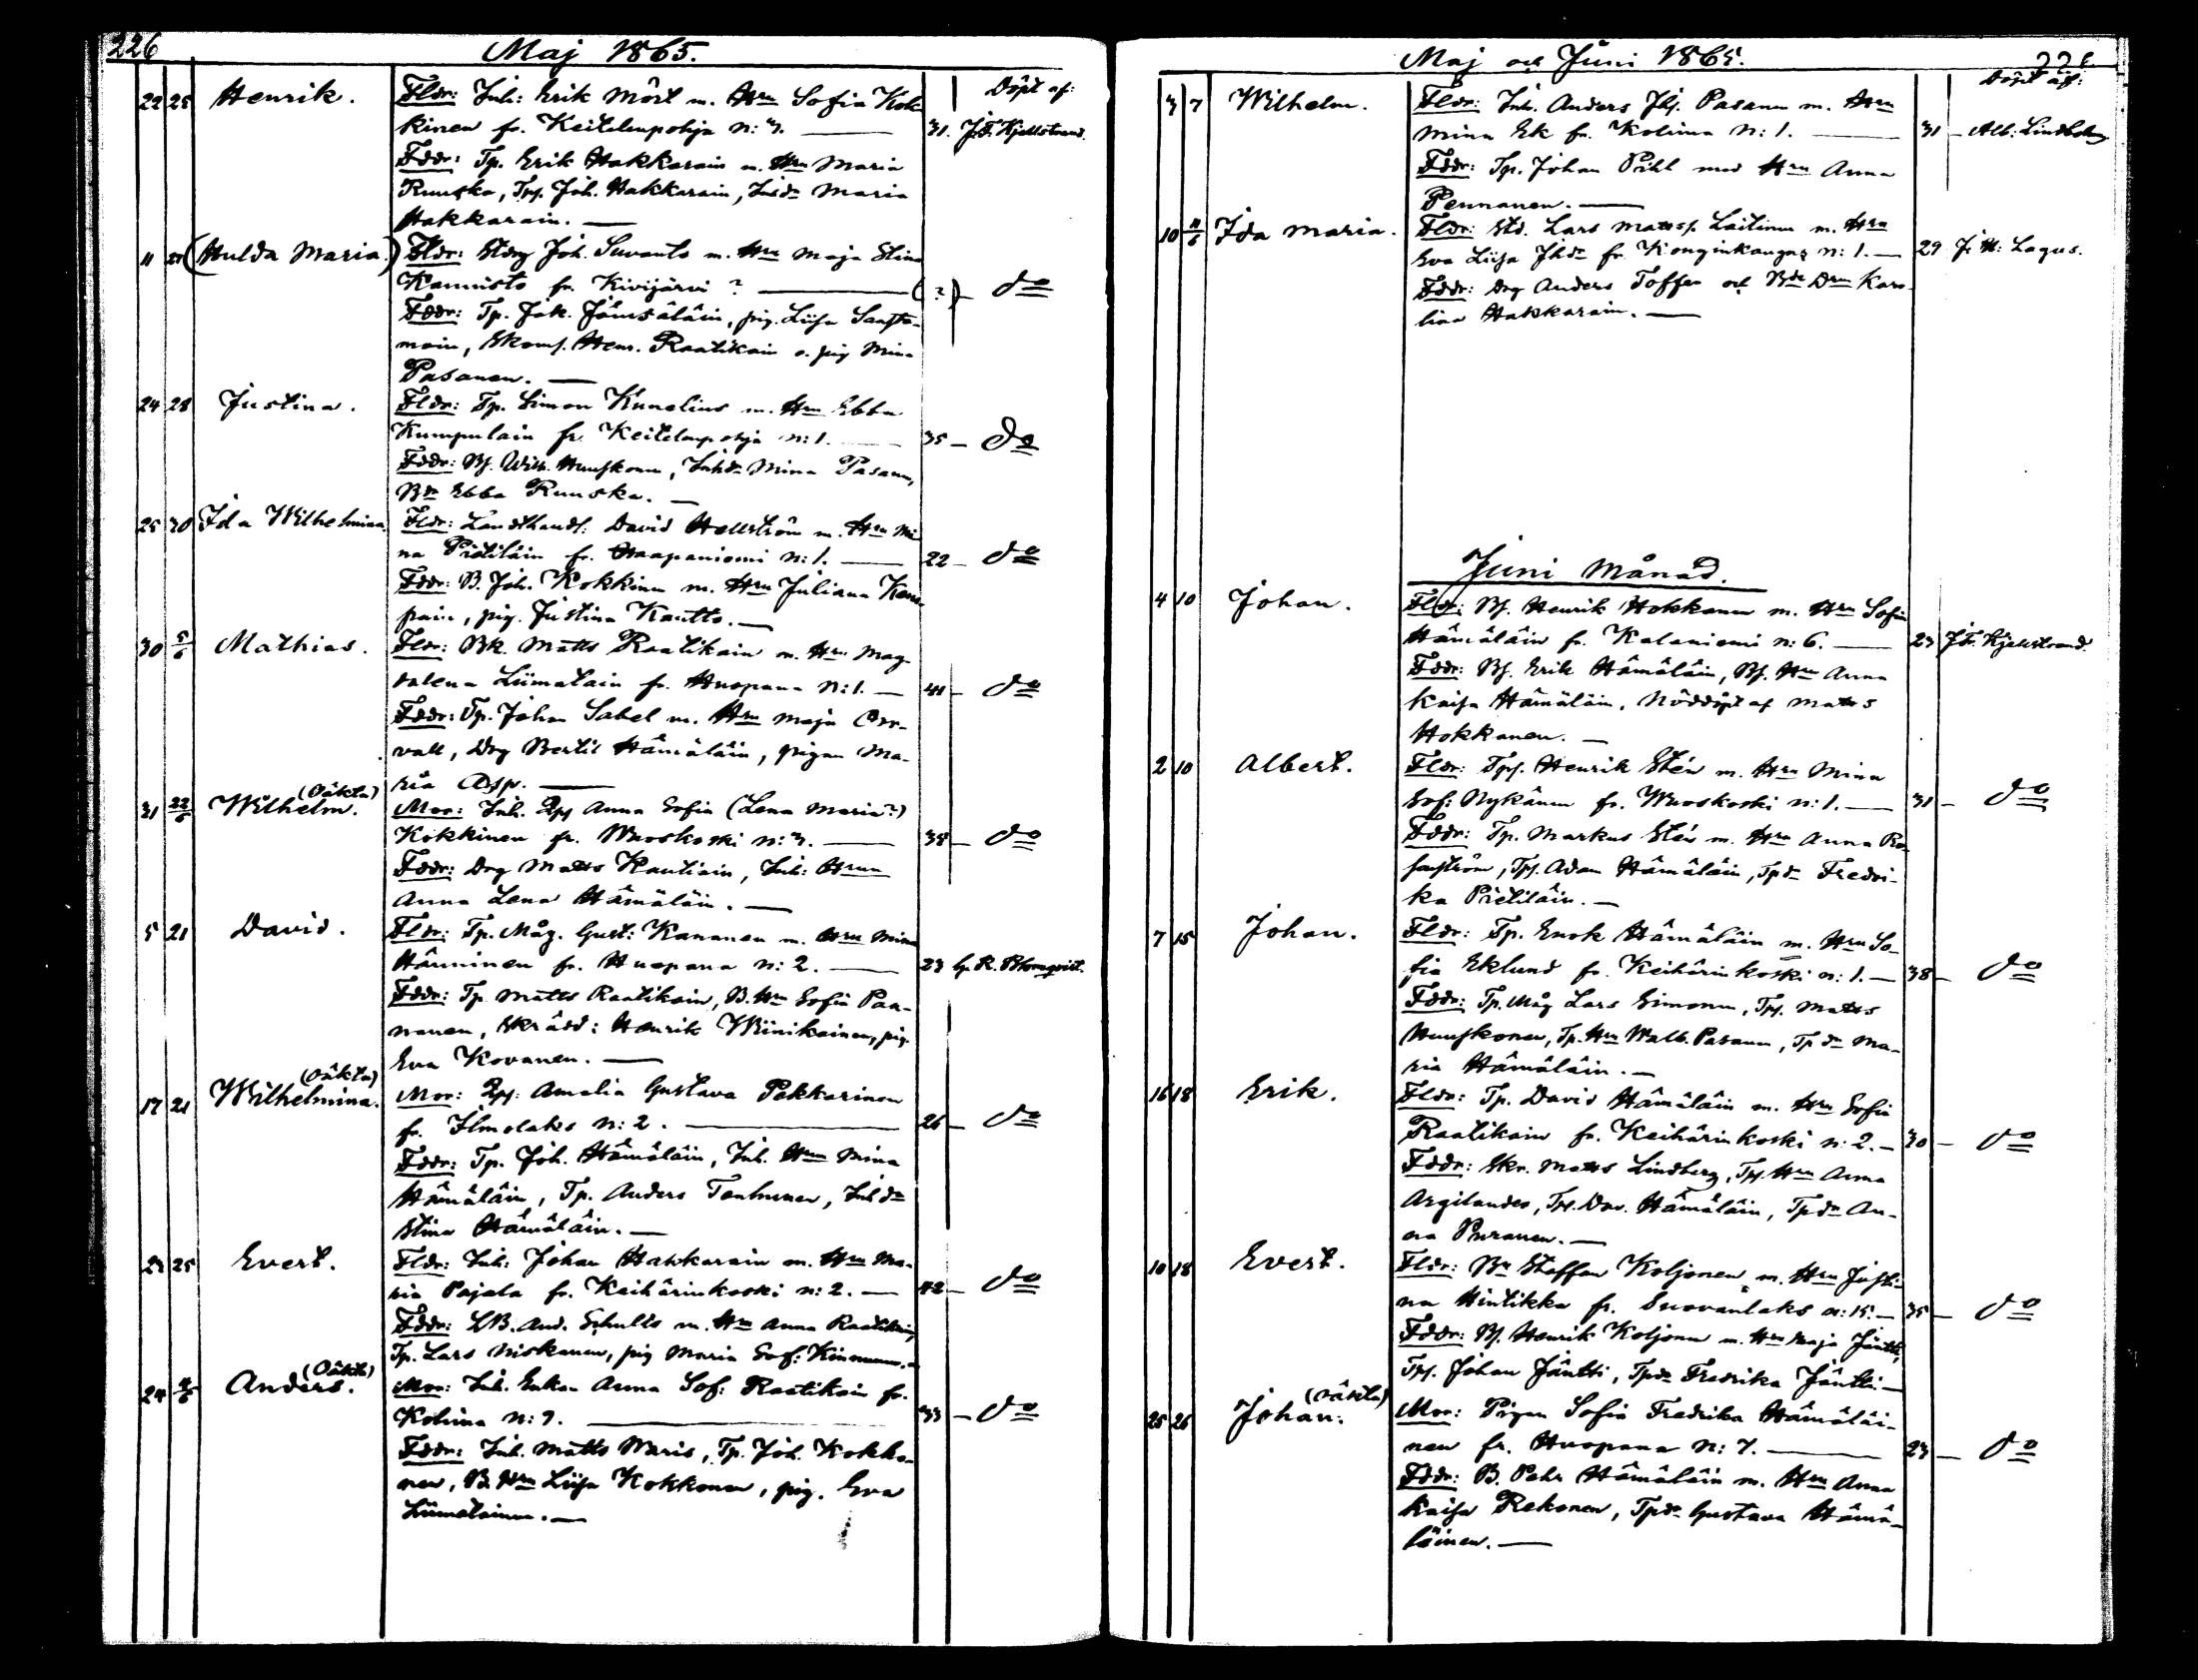 226
Maj 1865.
Döpt af:
22 25 Henrik. Fldr: Inh: Erik Mört m. Hru Sofia Kok-
kinen fr. Keitelepohja n: 3. — 31. J.F. Kjellstrand.
Fddr: Tp. Erik Hakkarain m. Hru Maria
Ruuska, Tps. Joh. Hakkarain, Inhdr Maria
Hakkarain. —
11 27 (Hulda Maria.) Fldr: Stdrg Joh. Suvanto m. Hru Maja Stina
Kannisto fr. Kivijärvi ? — (?) — do
Fddr: Tp. Joh. Jämsäläin, pig. Liisa Saasta-
moin, Skoms. Henr. Raatikain o. pig Mina
Pasanen. —
24 28 Justina. Fldr: Tp. Simon Kunelius m. Hru Ebba
Kumpulain fr. Keitelepohja n: 1. — 35 — do
Fddr: Bs. Wilh. Huuskonen, Inhdr Mina Pasanen,
Bdr Ebba Ruuska. —
25 30 Ida Wilhelmina. Fldr: Landthandl: David Hellström m. Hru Mi-
na Pietiläin fr. Haapaniemi n: 1. — 22 — do
Fddr: B. Joh. Kokkinen m. Hru Juliana
pain, pig. Justina Kautto. —
30 5/6 Mathias. Fldr: Bk. Matts Raatikain m. Hru Mag-
dalena Liimatain fr. Huopana n: 1. — 41 — do
Fddr: Tp. Johan Sabel m. Hru Maja Cor-
vall, Drg Bertil Hämäläin, pigan Ma-
ria Asp. —
31 22/6 Wilhelm. (Oäkta) Mor: Inh. Anna Sofia (Lena Maria?)
Kokkinen fr. Wuoskoski n: 3. — 35 — do
Fddr: Drg Matts Kautiain, Inh: Hrun
Anna Lena Hämäläin. —
5 21 David. Fldr: Tp. Måg. Gust: Kananen m. Hru Mina
Hänninen fr. Huopana n: 2. — 23 G. R. Blomqvist.
Fddr: Tp. Matts Raatikain, B. Hru Sofia Paa-
nanen, Skrädd: Henrik Wiinikainen, pig.
Eva Kovanen. —
17 21 Wilhelmina. (Oäkta) Mor: Amalia Gustava Pakkarinen
fr. Ilmolaks n: 2. — 26 — do
Fddr: Tp. Joh. Hämäläin, Inh. Hrun Mina
Hämäläin, Tp. Anders Tenhunen, Inhdr
Stina Hämäläin. —
23 25 Evert. Fldr: Inh: Johan Hakkarain m. Hru Ma-
ria Pajala fr. Keihärinkoski n: 2. — 42 — do
Fddr: LB. And. Schults m. Hru Anna Raatikain,
Tp. Lars Niskanen, pig Maria Sof: Kinnunen. —
24 4/6 Anders. (Oäkta) Mor: Inh. Enkan Anna Sof: Raatikain fr.
Kolima n: 7. — 33 — do
Fddr: Inh. Matts Waris, Tp. Joh. Kokko-
nen, B. Hru Liisa Kokkonen, pig. Eva
Liimatainen. —
Maj och Juni 1865.
226
Döpt af:
3 7 Wilhelm. Fldr: Inh. Anders Jhs. Pasanen m. Hru
Mina Ek fr. Kolima n: 1. — 31 — Alb: Lindberg
Fddr: Tp. Johan Pihl med Hru Anna
Pennanen. —
10 11/6 Ida Maria. Fldr: Std. Lars Mattss. Laitinen m. Hru
Eva Liisa Jhdr fr. Konginkangas n: 1. — 29 J. H: Lagus.
Fddr: Drg Anders Toffer och Bdr Drn Karo-
lina Hakkarain. —
Juni Månad.
4 10 Johan. Fldr: Bs. Henrik Hokkanen m. Hru Sofia
Hämäläin fr. Kalaniemi n: 6. — 23 J.F. Kjellstrand.
Fddr: Bs. Erik Hämäläin, Bs. Hru Anna
Kaisa Hämäläin. Nöddöpt af Matts
Hokkanen. —
2 10 Albert. Fldr: Tps. Henrik Stén m. Hru Mina
Sof: Nykänen fr. Wuoskoski n: 1. — 31 — do
Fddr: Tp. Markus Stén m. Hru Anna Ro-
senström, Tps. Adam Hämäläin, Tpdr Fredri-
ka Pietiläin. —
7 15 Johan. Fldr: Tp. Enok Hämäläin m. Hru So-
fia Eklund fr. Keihärinkoski n: 1. — 38 — do
Fddr: Tp. Måg Lars Simonen, Tps. Matts
Huuskonen, Tp. Hru Walb. Pasanen, Tpdr Ma-
ria Hämäläin. —
16 18 Erik. Fldr: Tp. David Hämäläin m. Hru Sofia
Raatikain fr. Keihärinkoski n: 2. — 30 — do
Fddr: Skr. Matts Lindberg, Tps. Hru Anna
Argilander, Tps. Dav. Hämäläin, Tpdr An-
na Puranen. —
10 18 Evert. Fldr: Bn Staffan Koljonen m. Hru Justi-
na Hintikka fr. Suovanlaks n: 15. — 35 — do
Fddr: Bs. Henrik Koljonen m. Hru Maja Jäntti,
Tps. Johan Jäntti, Tpdr Fredrika Jäntti. —
25 26 Johan. (Oäkta) Mor: Pigan Sofia Fredrika Hämäläi-
nen fr. Huopana n: 7. — 23 — do
Fddr: B. Pehr Hämäläin m. Hru Anna
Kaisa Rekonen, Tpdr Gustava Hämä-
läinen. —